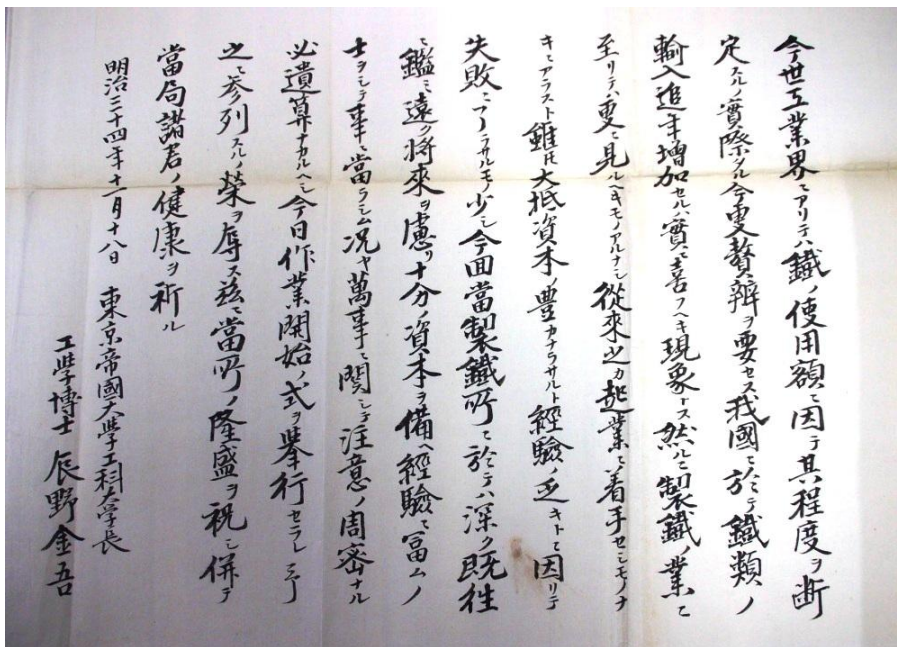 今世工業界ニアリテハ鐵ノ使用額ニ因テ其程度ヲ断
定スルノ實際タル今更贅辨ヲ要セス我國ニ於テ鐵類ノ
輸入追年増加セルハ實ニ喜フヘキ現象トス然ルニ製鐵ノ業ニ
至リテハ更ニ見ルヘキモノアルナシ從來之カ起業ニ着手セシモノナ
キニアラスト雖トモ大抵資本ノ豊カナラサルト經驗ノ乏キトニ因リテ
失敗ニアラサルモノ少シ今回當製鐵所ニ於テハ深ク既往
ニ鑑ミ遠ク将來ヲ慮リ十分ノ資本ヲ備ヘ經驗ニ冨ムノ
士ヲシテ事ニ當ラシム况ヤ萬事ニ関シテ注意ノ周密ナル
必遺算ナカルヘシ今日作業開始ノ式ヲ挙行セラレ予
之ニ参列スルノ榮ヲ辱ス茲ニ當所ノ隆盛ヲ祝シ併テ
當局諸君ノ健康ヲ祈ル
明治三十四年十一月十八日 東京帝國大學工科大学長
工學博士 辰野金吾